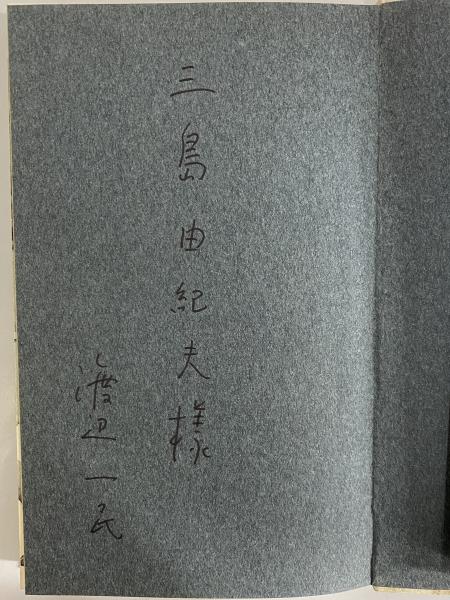 三島由紀夫様
渡辺一民